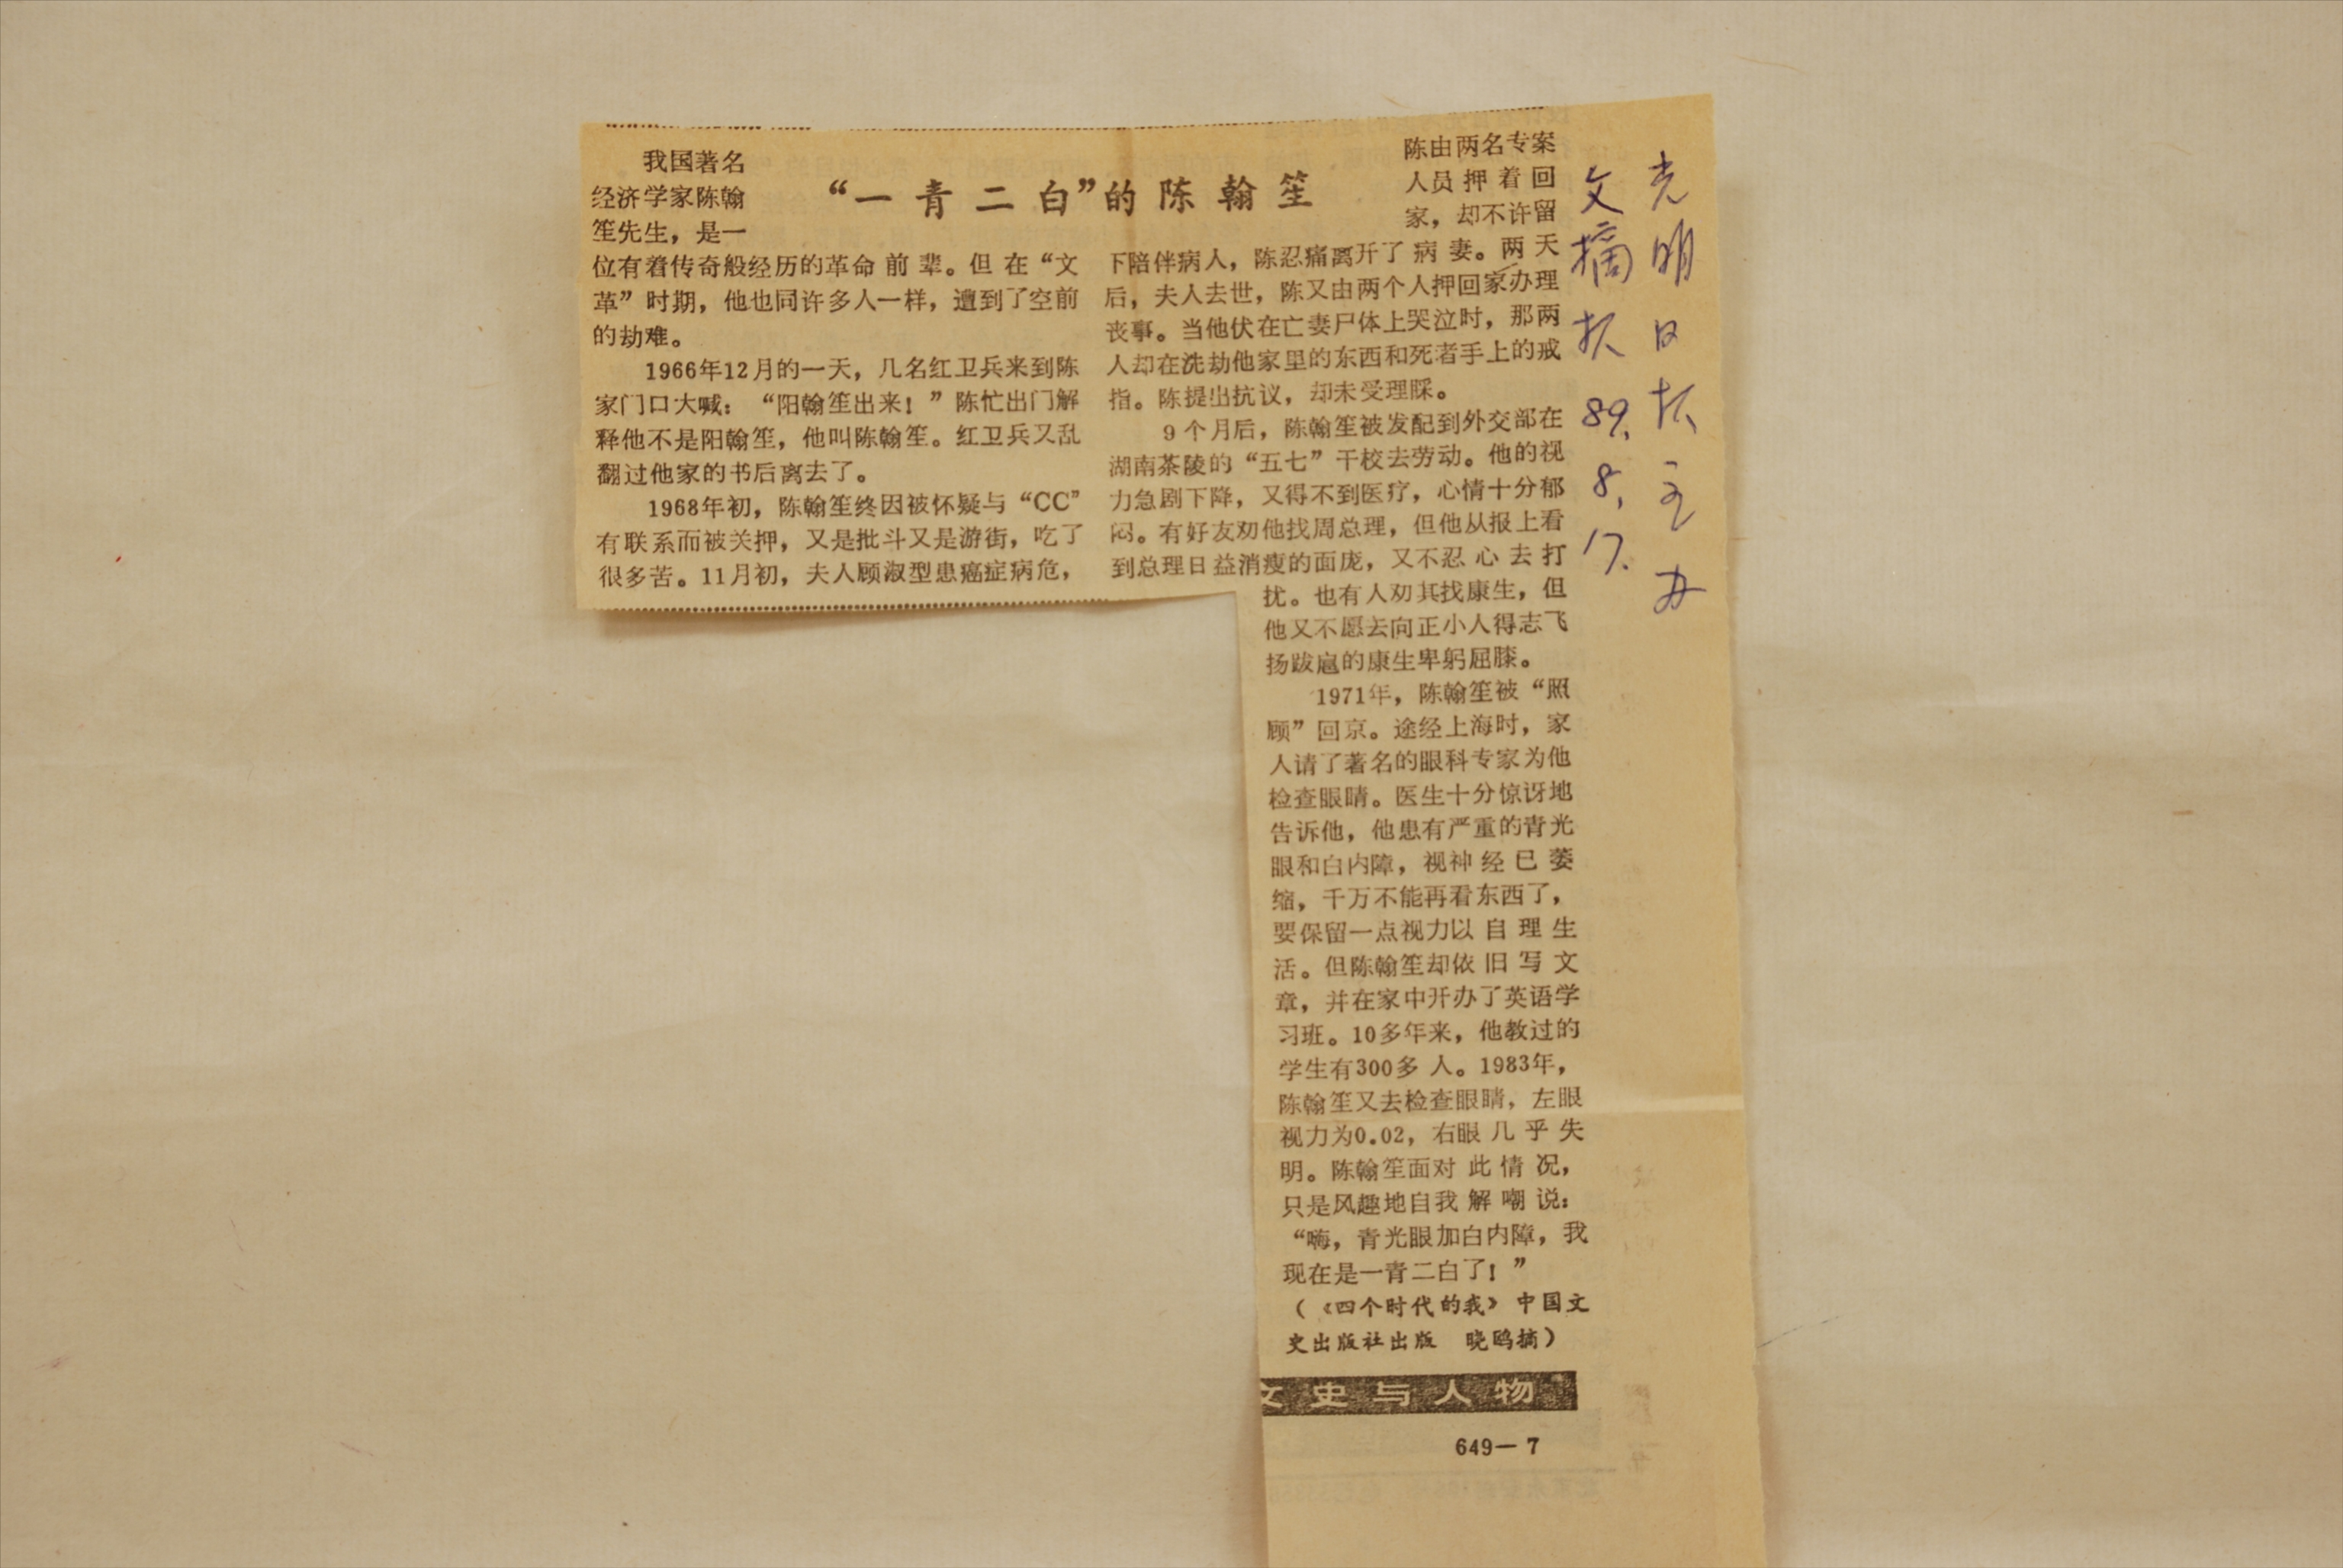 “一青二白”的陈翰笙
我国著名
经济学家陈翰
笙先生，是一
位有着传奇般经历的革命前辈。但在“文
革”时期，他也同许多人一样，遭到了空前
的劫难。
1966年12月的一天，几名红卫兵来到陈
家门口大喊：“阳翰笙出来！”陈忙出门解
释他不是阳翰笙，他叫陈翰笙。红卫兵又乱
翻过他家的书后离去了。
1968年初，陈翰笙终因被怀疑与“CC”
有联系而被关押，又是批斗又是游街，吃了
很多苦。11月初，夫人顾淑型患癌症病危，
陈由两名专案
人员押着回
家，却不许留
下陪伴病人，陈忍痛离开了病妻。两天
后，夫人去世，陈又由两个人押回家办理
丧事。当他伏在亡妻尸体上哭泣时，那两
人却在洗劫他家里的东西和死者手上的戒
指。陈提出抗议，却未受理睬。
9个月后，陈翰笙被发配到外交部在
湖南茶陵的“五七”干校去劳动。他的视
力急剧下降，又得不到医疗，心情十分郁
闷。有好友劝他找周总理，但他从报上看
到总理日益消瘦的面庞，又不忍心去打
扰。也有人劝其找康生，但
他又不愿去向正小人得志飞
扬跋扈的康生卑躬屈膝。
1971年，陈翰笙被“照
顾”回京。途经上海时，家
人请了著名的眼科专家为他
检查眼睛。医生十分惊讶地
告诉他，他患有严重的青光
眼和白内障，视神经已萎
缩，千万不能再看东西了，
要保留一点视力以自理生
活。但陈翰笙却依旧写文
章，并在家中开办了英语学
习班。10多年来，他教过的
学生有300多人。1983年，
陈翰笙又去检查眼睛，左眼
视力为0.02，右眼几乎失
明。陈翰笙面对此情况，
只是风趣地自我解嘲说：
“嗨，青光眼加白内障，我
现在是一青二白了！”
（《四个时代的我》中国文
史出版社出版 晓鸥摘）
文史与人物
649—7
光明日报主办
文摘报89.8.17.